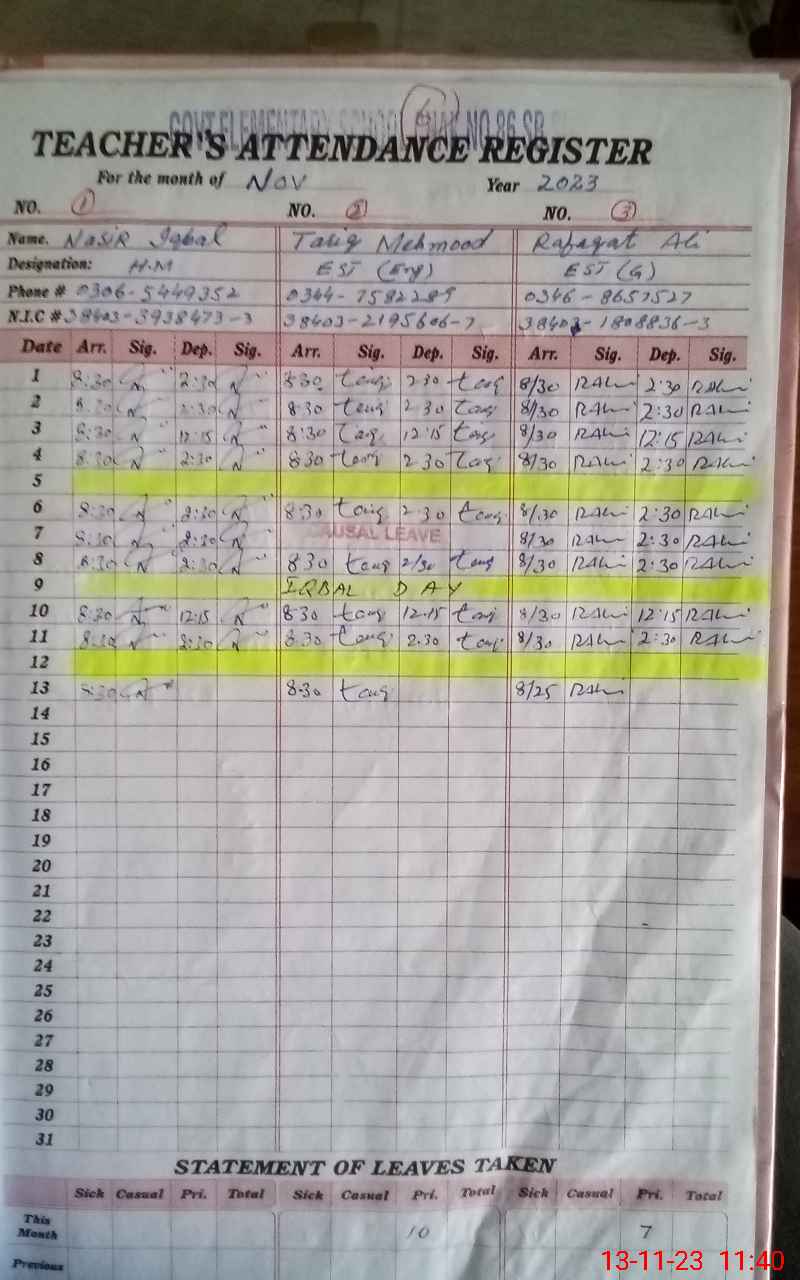 GOVT. ELEMENTARY SCHOOL CHAK NO. 86 SB
TEACHER'S ATTENDANCE REGISTER
For the month of Nov Year 2023
NO. 1 NO. 2 NO. 3
Name. Nasir Iqbal Tariq Mehmood Rafaqat Ali
Designation: H.M EST (Eng) EST (G)
Phone # 0306-5449352 0344-7582289 0346-8657527
N.I.C # 38403-3938473-3 38403-2195606-7 38403-1808836-3
Date Arr. Sig. Dep. Sig. Arr. Sig. Dep. Sig. Arr. Sig. Dep. Sig.
1 8:30 2:30 8 30 tariq 2 30 tariq 8/30 RALi 2:30 RALi
2 8:30 2:30 8 30 tariq 2 30 tariq 8/30 RALi 2:30 RALi
3 8:30 12:15 8:30 tariq 12:15 tariq 8/30 RALi 12:15 RALi
4 8:30 2:30 8 30 tariq 2 30 tariq 8/30 RALi 2:30 RALi
5
6 8:30 2:30 8:30 tariq 2 30 tariq 8/30 RALi 2:30 RALi
7 8:30 2:30 CAUSAL LEAVE 8/30 RALi 2:30 RALi
8 8:30 2:30 8 30 tariq 2/30 tariq 8/30 RALi 2:30 RALi
9 IQBAL DAY
10 8:30 12:15 8:30 tariq 12.15 tariq 8/30 RALi 12:15 RALi
11 8:30 2:30 8.30 tariq 2.30 tariq 8/30 RALi 2:30 RALi
12
13 8:30 8.30 tariq 8/25 RALi
14
15
16
17
18
19
20
21
22
23
24
25
26
27
28
29
30
31
STATEMENT OF LEAVES TAKEN
Sick Casual Pri. Total Sick Casual Pri. Total Sick Casual Pri. Total
This Month 10 7
Previous
13-11-23 11:40